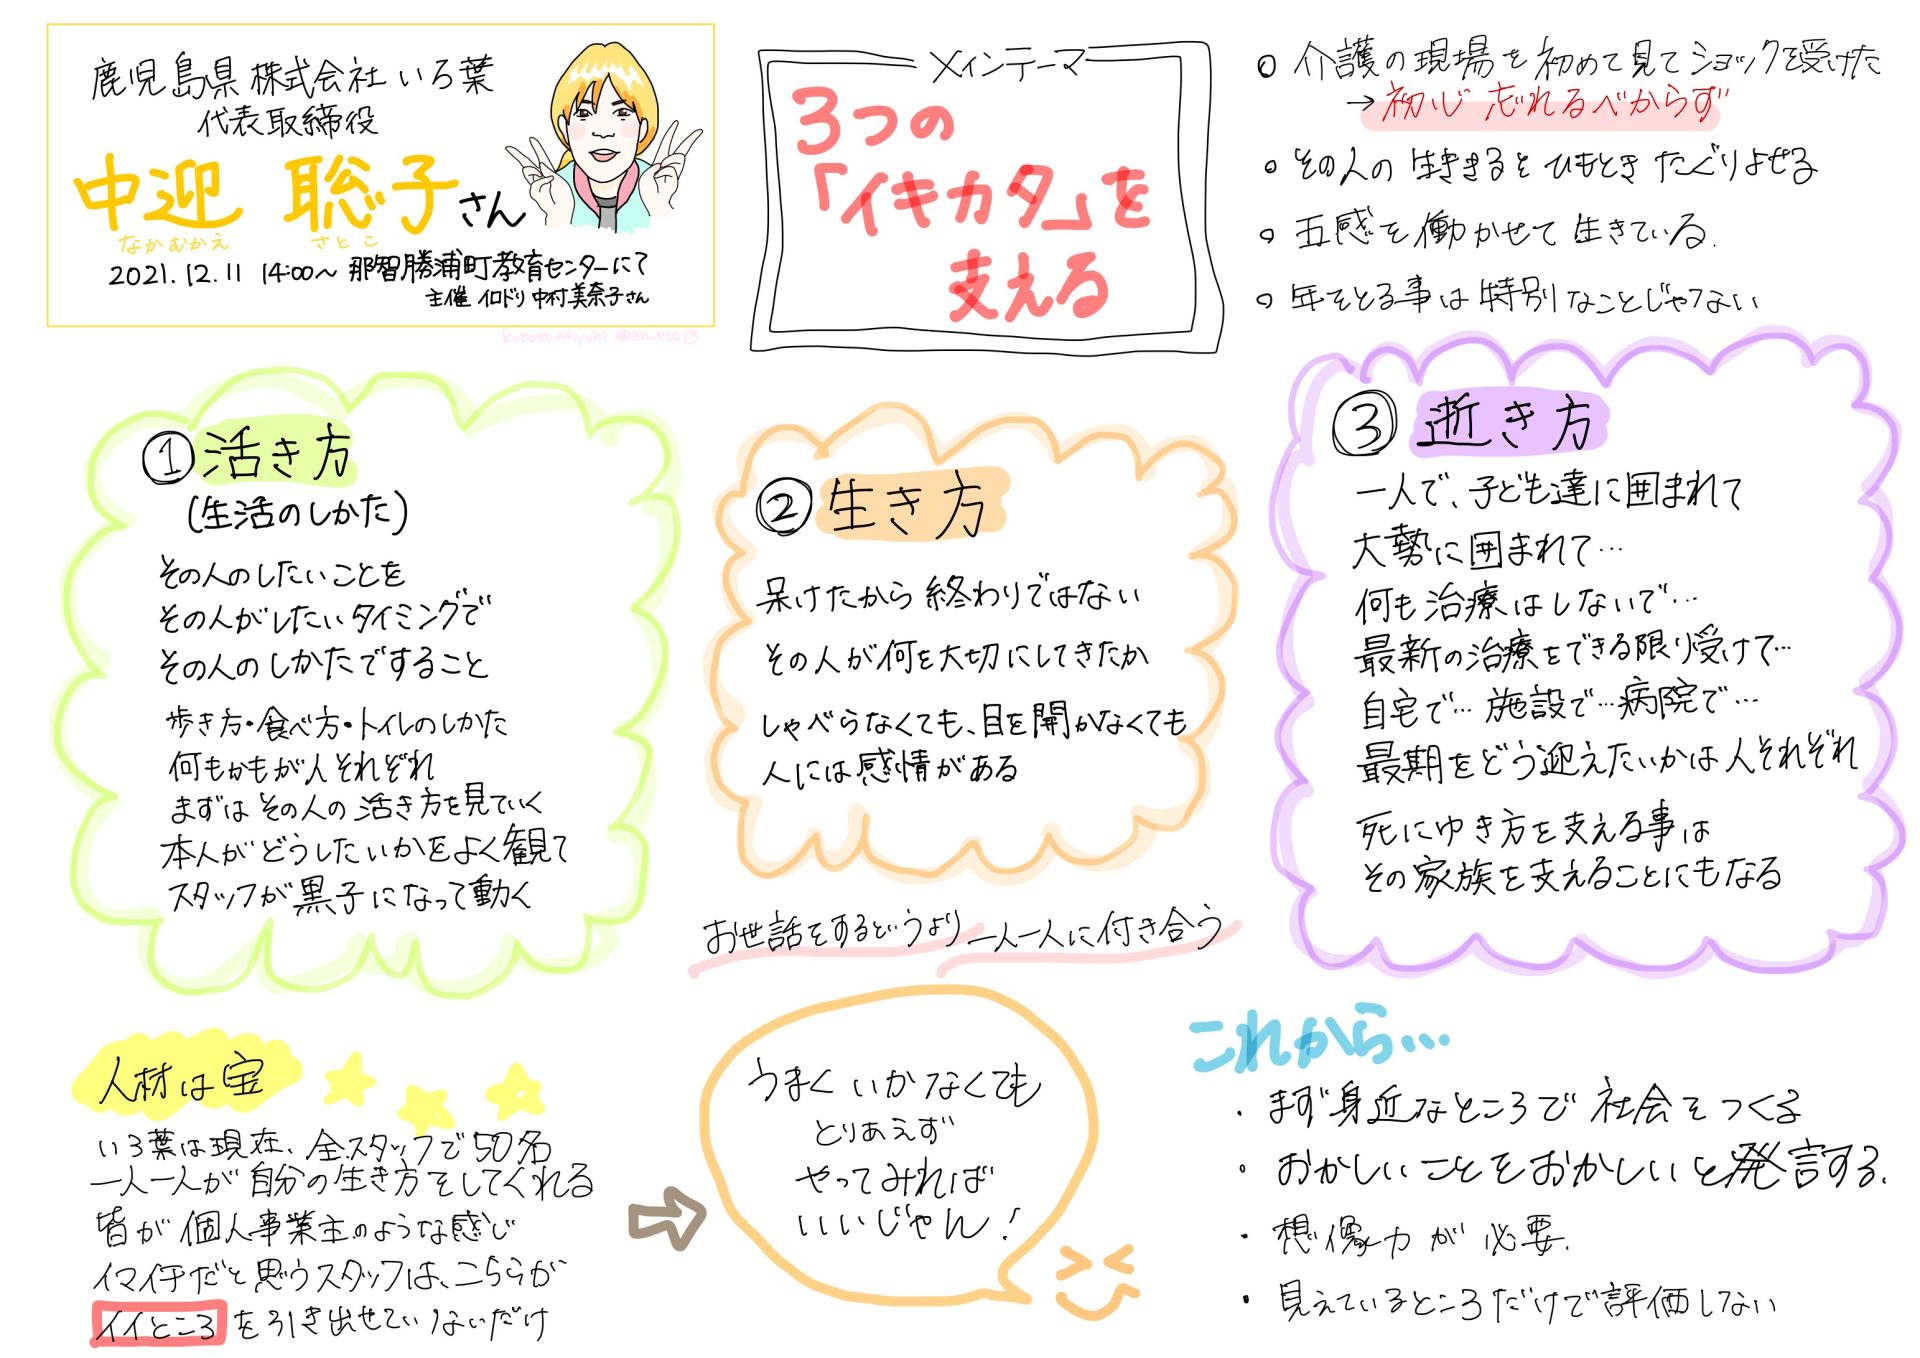 鹿児島県 株式会社 いろ葉
代表取締役
中迎 聡子さん
なかむかえ さとこ
2021.12.11 14:00〜 那智勝浦町教育センターにて
主催 イロドリ 中村美奈子さん
Kubota Miyuki @an_etc
メインテーマ
3つの
「イキカタ」を
支える
介護の現場を初めて見てショックを受けた
→初心忘れるべからず
その人の生ききるをひもときたぐりよせる
五感を働かせて生きている.
年をとる事は特別なことじゃない
①活き方
(生活のしかた)
その人のしたいことを
その人がしたいタイミングで
その人のしかたですること
歩き方・食べ方・トイレのしかた
何もかもが人それぞれ
まずはその人の活き方を見ていく
本人がどうしたいかをよく観て
スタッフが黒子になって動く
②生き方
呆けたから終わりではない
その人が何を大切にしてきたか
しゃべらなくても、目を開かなくても
人には感情がある
③逝き方
一人で、子ども達に囲まれて
大勢に囲まれて…
何も治療はしないで…
最新の治療をできる限り受けて…
自宅で…施設で…病院で…
最期をどう迎えたいかは人それぞれ
死にゆき方を支える事は
その家族を支えることにもなる
お世話をするというより一人一人に付き合う
人材は宝
いろ葉は現在、全スタッフで50名
一人一人が自分の生き方をしてくれる
皆が個人事業主のような感じ
イマイチだと思うスタッフは、こちらが
イイところを引き出せていないだけ
うまくいかなくても
とりあえず
やってみれば
いいじゃん!
これから…
・まず身近なところで社会をつくる
・おかしいことをおかしいと発言する.
・想像力が必要.
・見えているところだけで評価しない